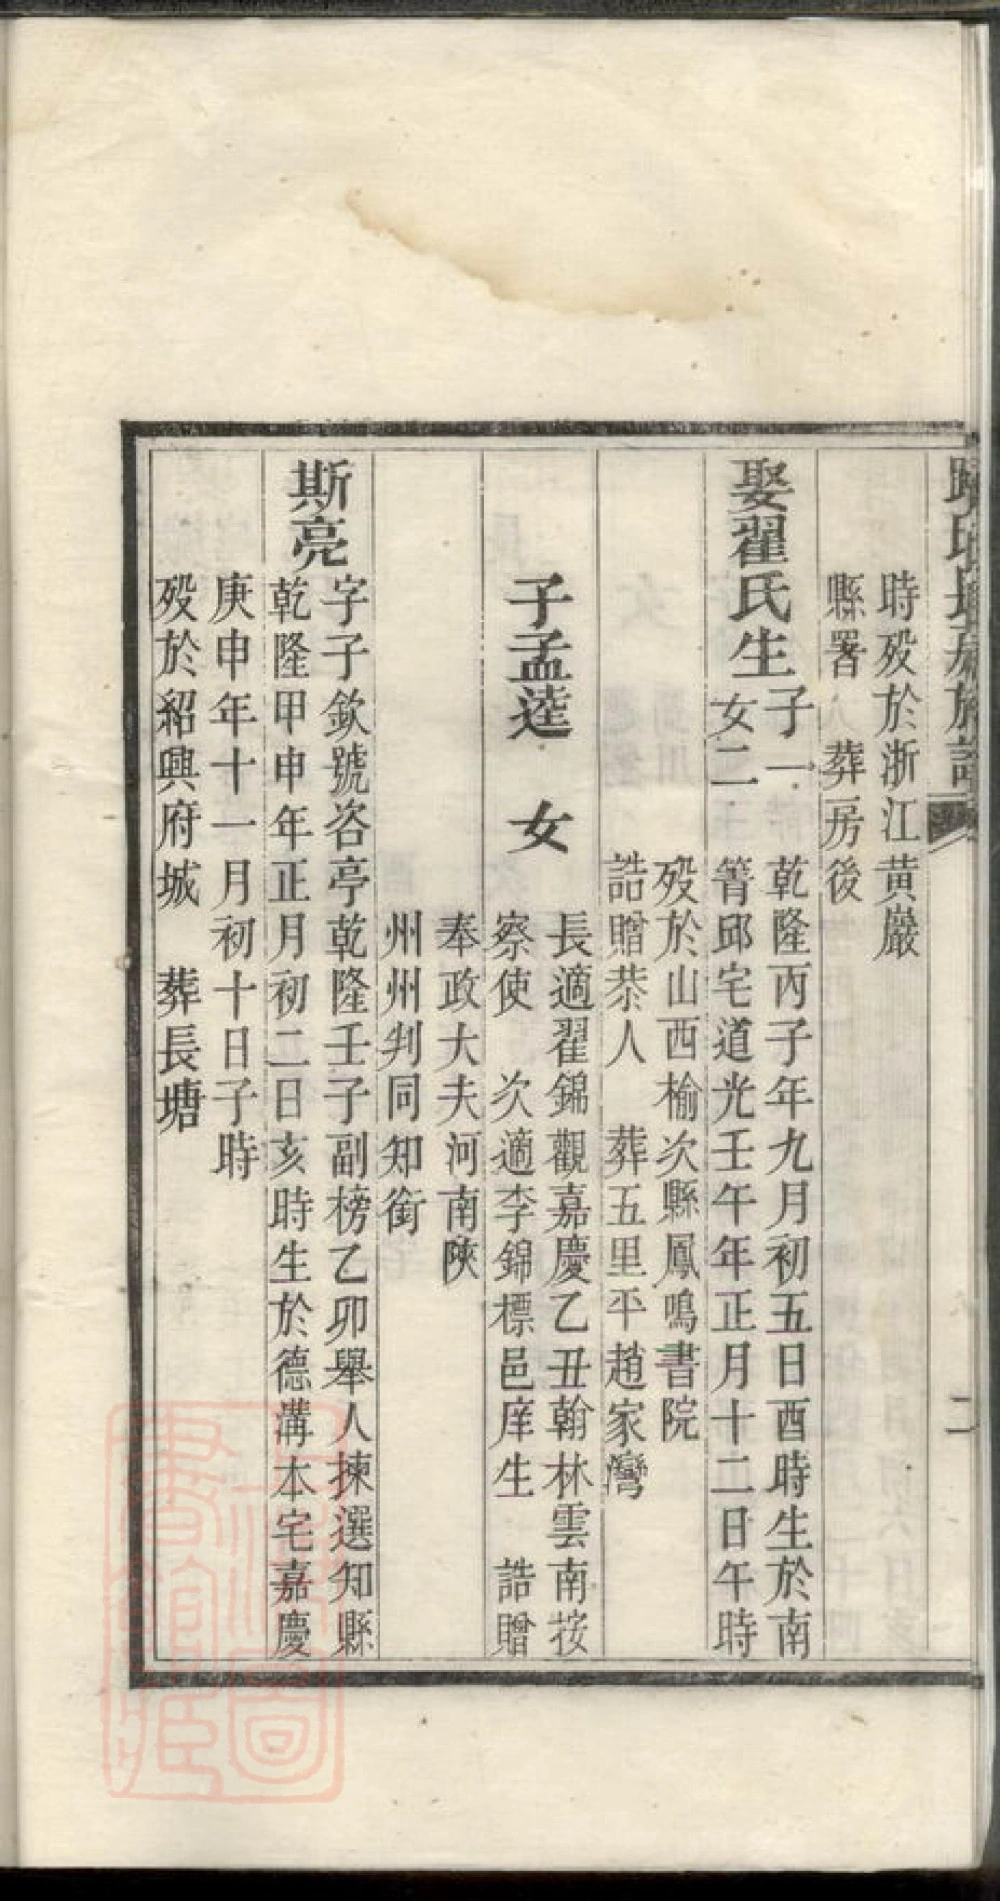 時歿於浙江黃巖
縣署　葬房後
娶翟氏生子一女二
乾隆丙子年九月初五日酉時生於南
箐邱宅道光壬午年正月十二日午時
歿於山西榆次縣鳳鳴書院
誥贈恭人　葬五里平趙家灣
子孟逵　女
長適翟錦觀嘉慶乙丑翰林雲南按
察使　次適李錦標邑庠生　誥贈
奉政大夫河南陝
州州判同知銜
斯亮
字子欽號咨亭乾隆壬子副榜乙卯舉人揀選知縣
乾隆甲申年正月初二日亥時生於德溝本宅嘉慶
庚申年十一月初十日子時
歿於紹興府城　葬長塘
二